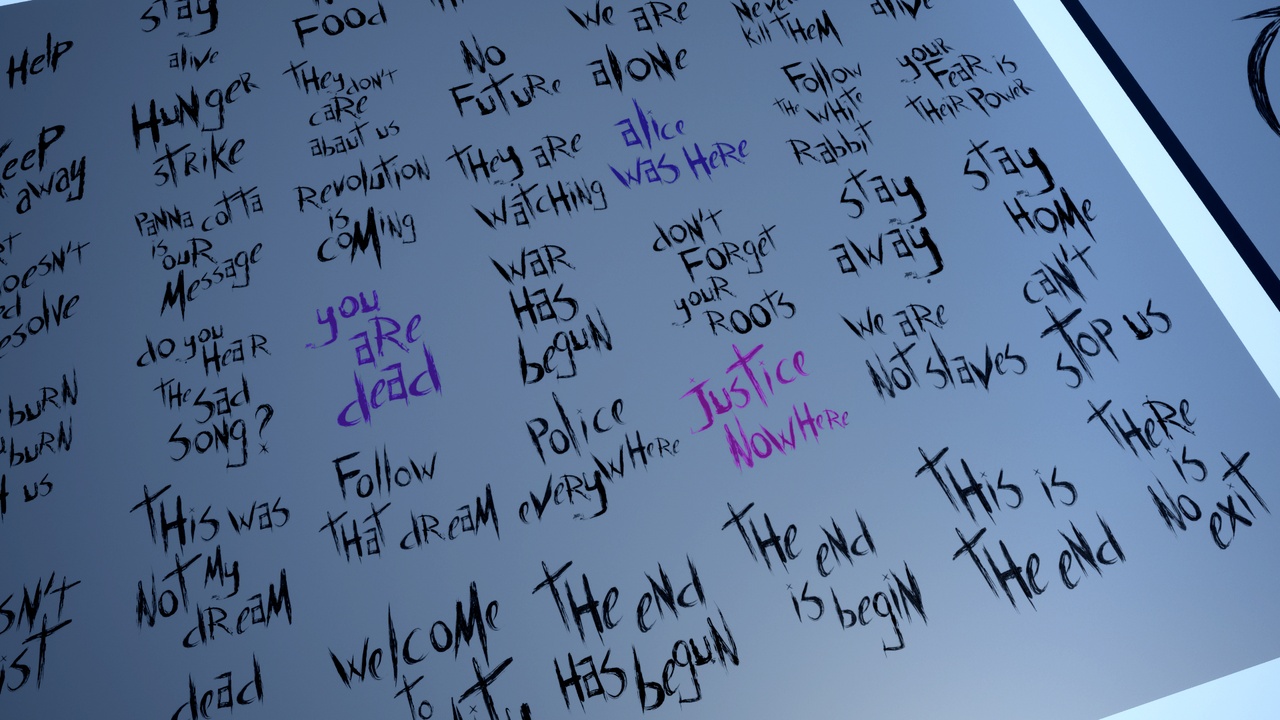 Help
stay
alive
Food
No
Future
we are
alone
Never
Kill them
alive
Hunger
strike
they don't
care
about us
Follow
the white
Rabbit
your
Fear is
their power
away
Panna cotta
is our
Message
Revolution
is
coming
they are
watching
alice
was here
stay
away
stay
home
do you
Hear
the sad
song?
you
are
dead
war
Has
begun
don't
Forget
your
Roots
we are
Not slaves
can't
stop us
burn
burn
us
Follow
that dream
Police
everywhere
Justice
Nowhere
This was
Not My
dream
The end
is begin
This is
The end
There
is
No
exit
dead
welcome
to
The end
Has begun